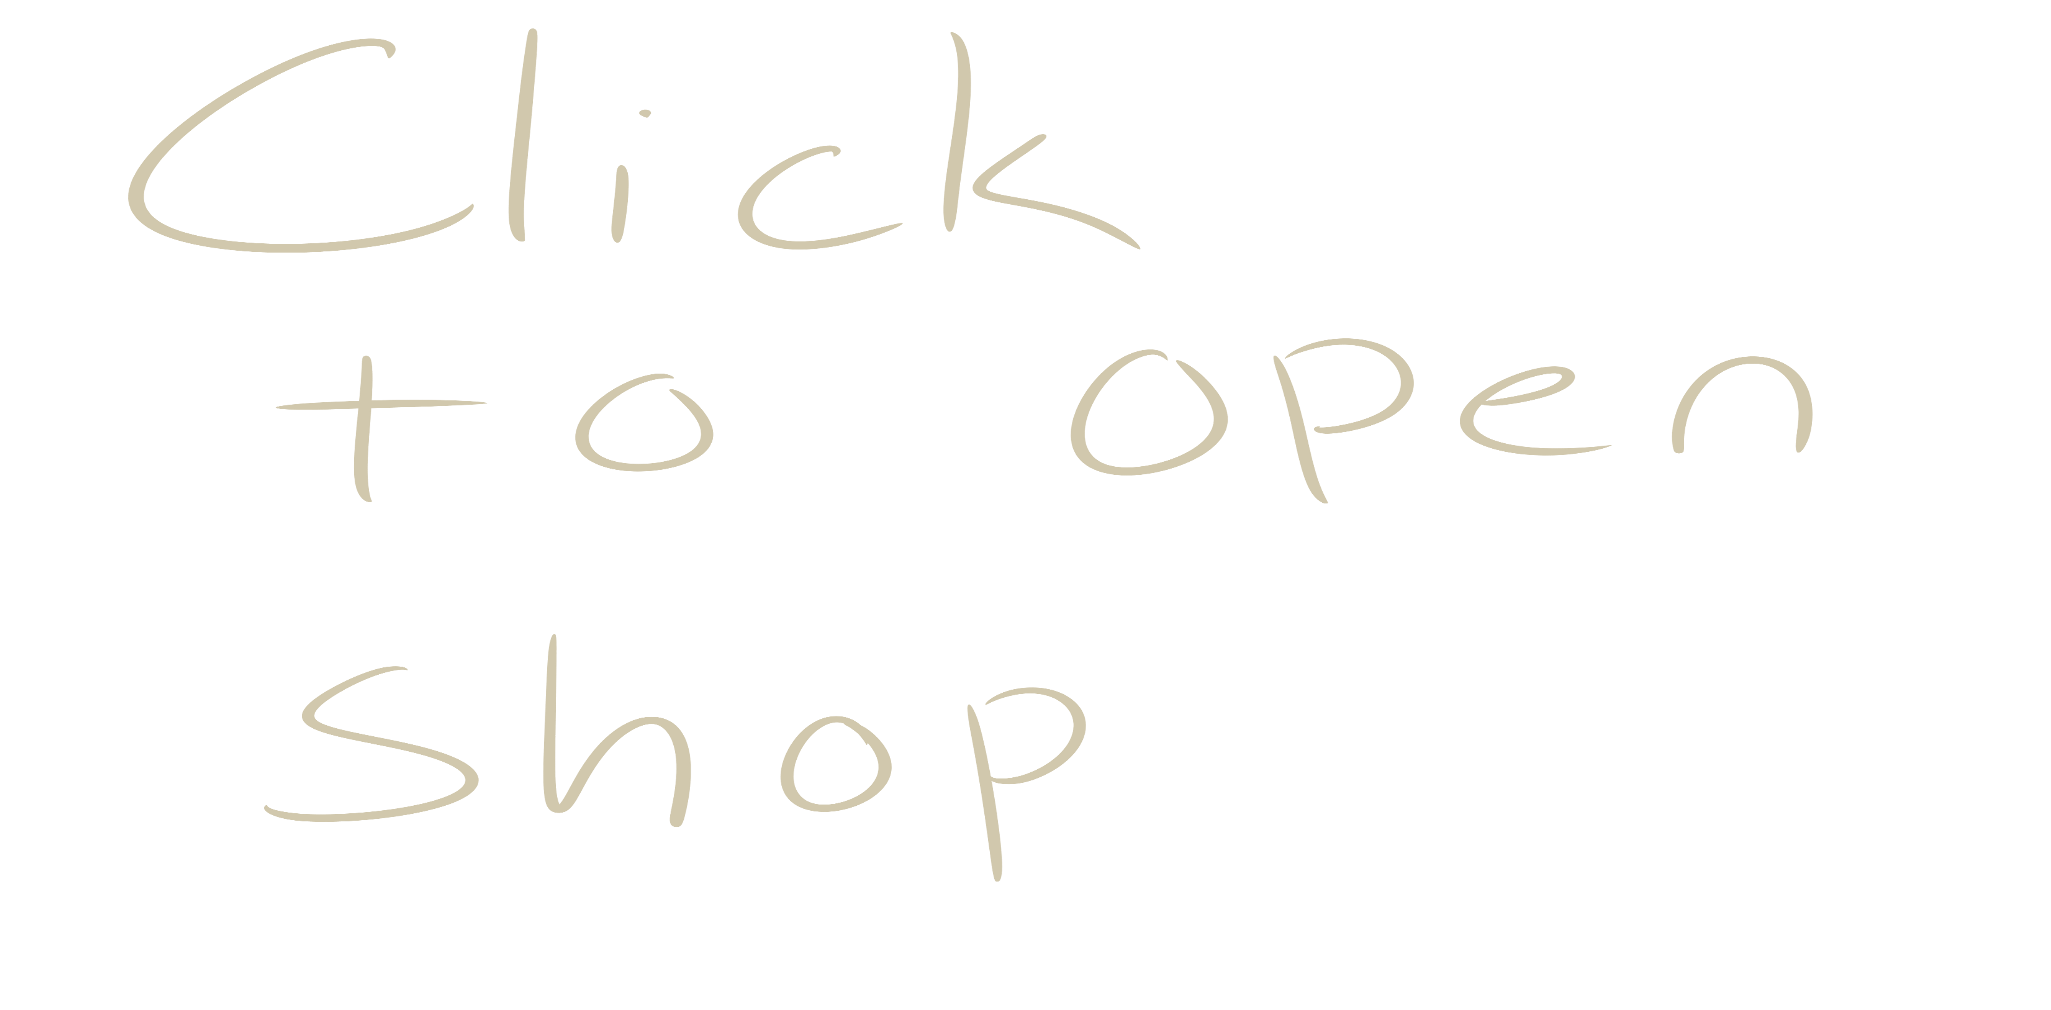 Click
to open
shop